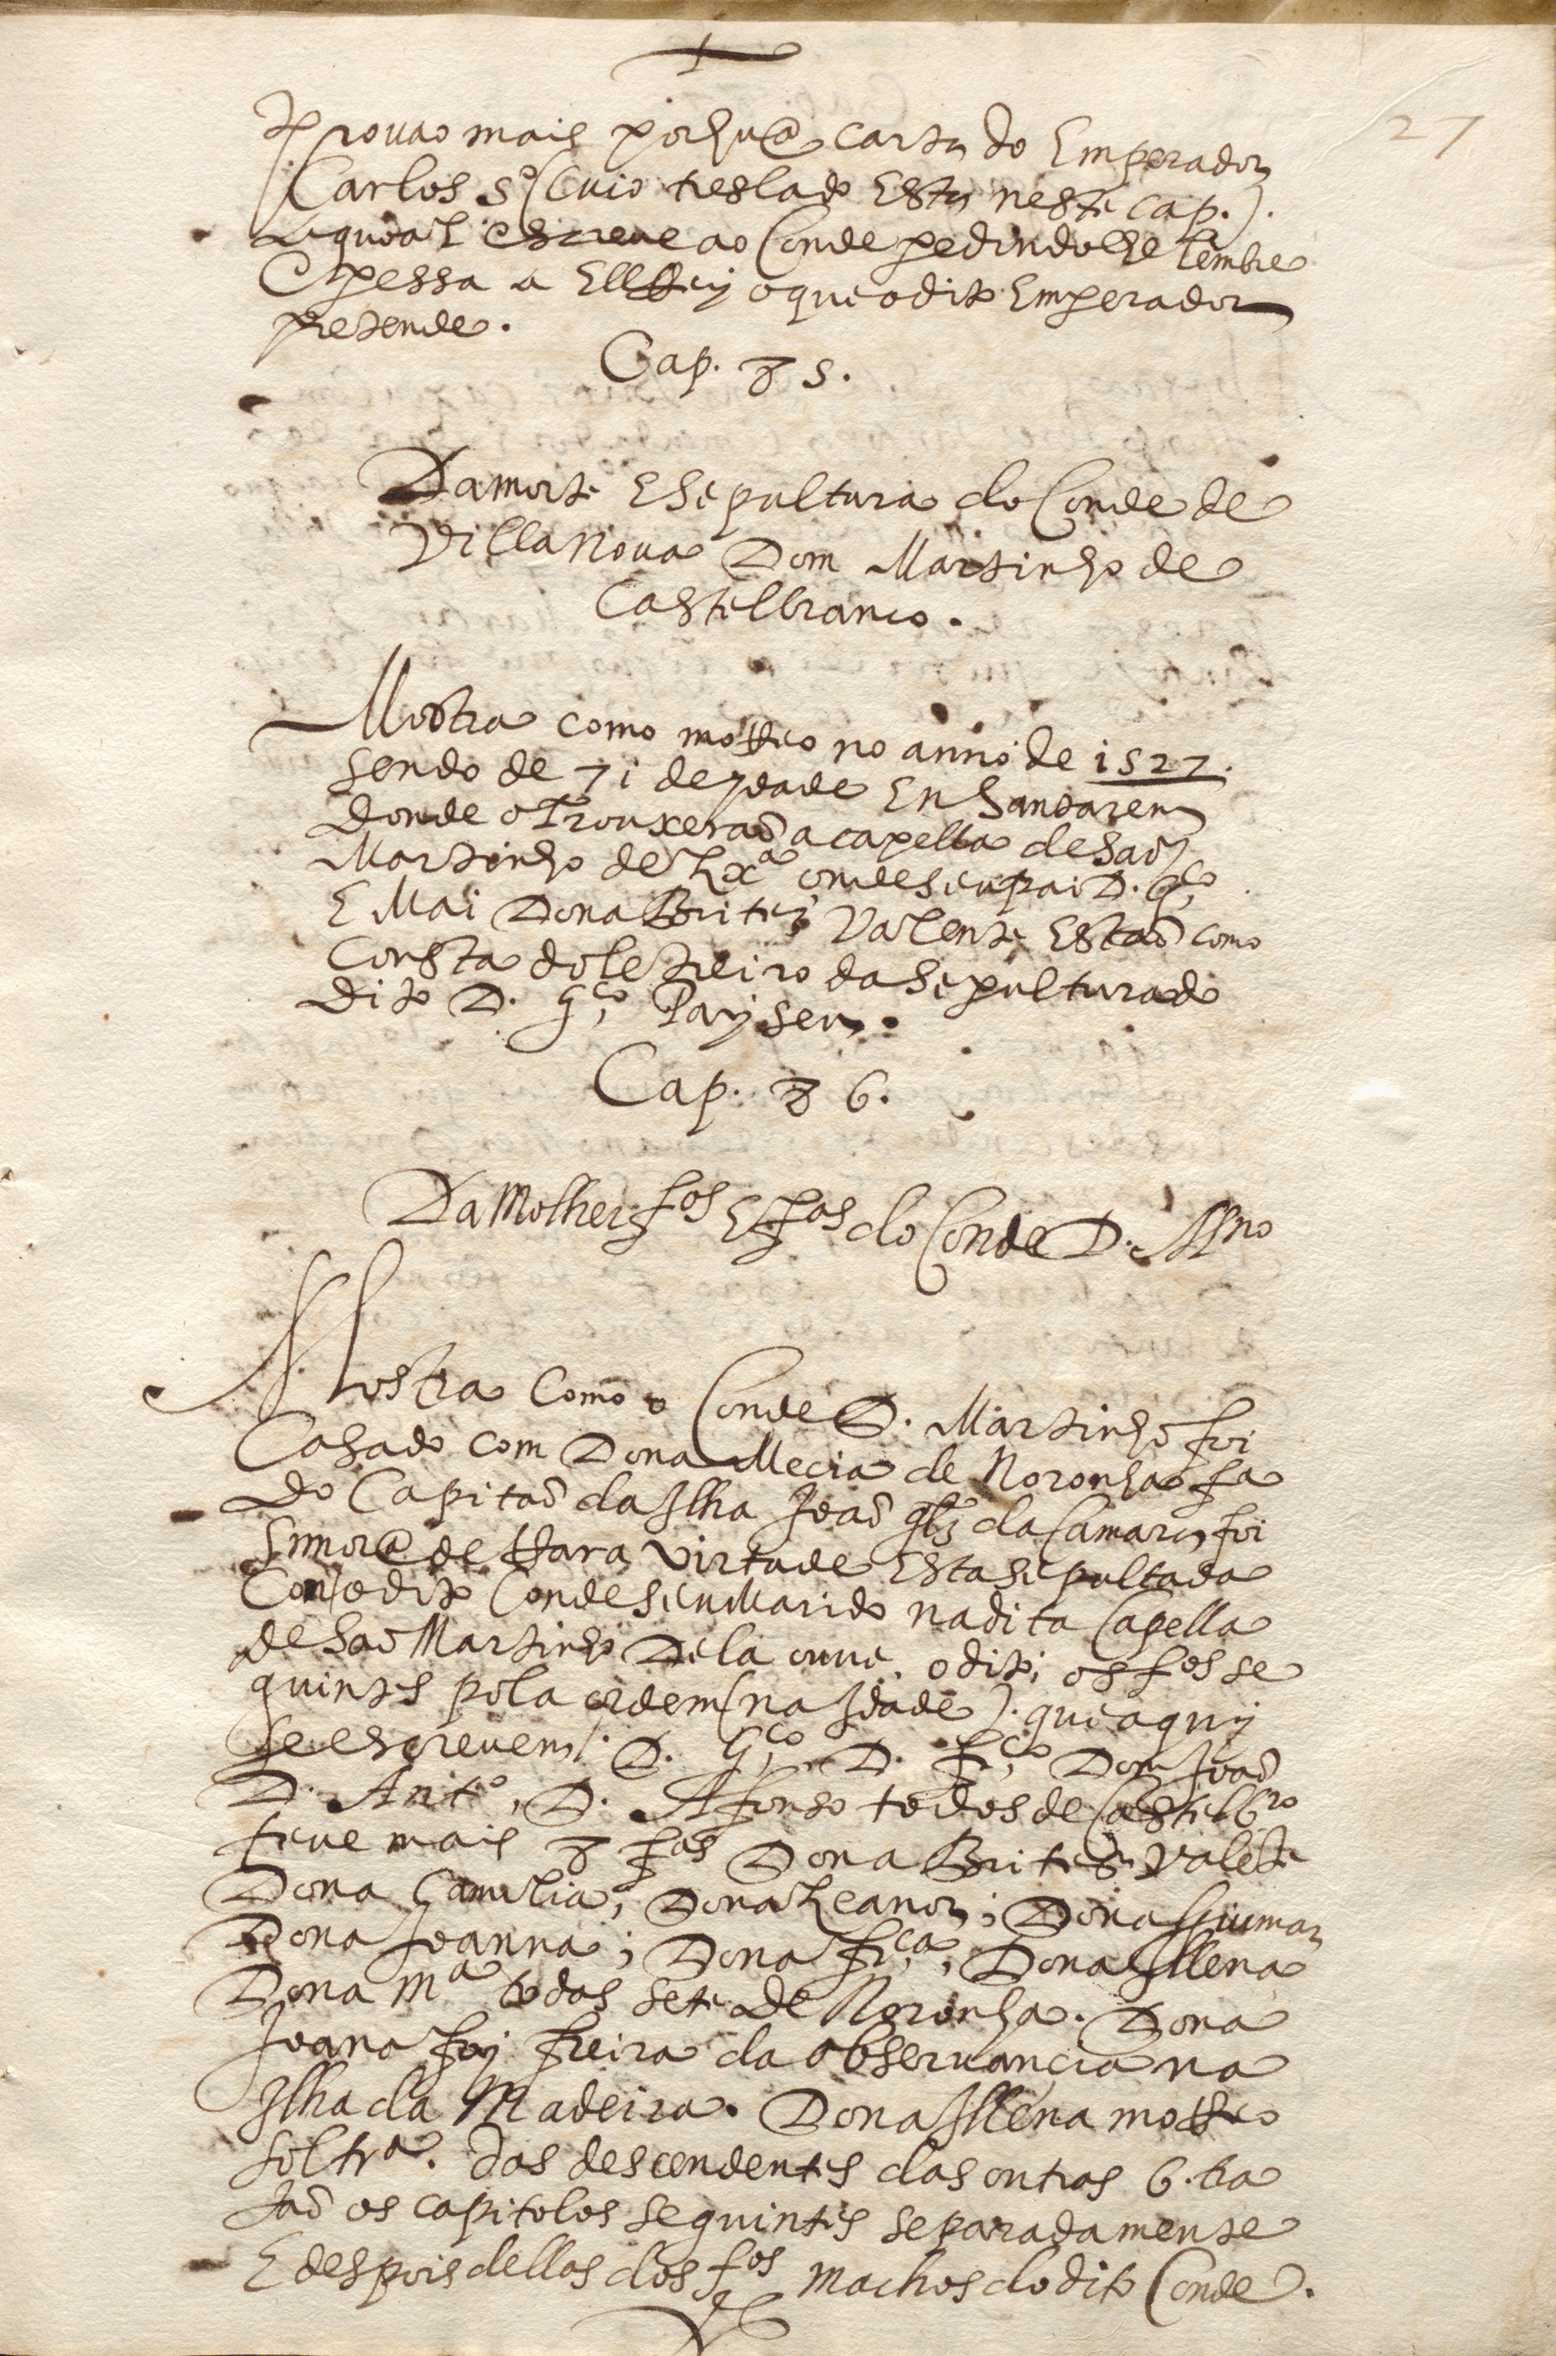 27
Prouao mais por hu@ carta do Emperador
Carlos 5º (Cuio treslado Esta neste cap.).
A qual escreue ao Conde pedindolhe lembre
E pessa a ElRey o que o dito Emperador
pretende.
Cap. 85.
Da morte E sepultura do Conde de
Villa Noua Dom Martinho de
Castelbranco.
Mostra como morreo no anno de 1527.
sendo de 71 de ydade En Santarem
donde o Trouxeraõ a capella de Saõ
Martinho de Lxª onde seu pai D. Gco
E Mai Dona Britez Valente Estaõ como
Consta do letreiro da sepultura do
Dito D. Gco Pay seu.
Cap. 86.
Da Molher fos E fas do Conde D. Mno
Mostra Como o Conde D. Martinho foi
Casado com Dona Mecia de Noronha fa
do Capitaõ da Ilha Joaõ glz da Camara foi
Snnor@ de Rara virtude Esta sepultada
Con o dito Conde seu Marido na dita Capella
de Saõ Martinho Dela ouue o dito os fos se
guintes pola ordem (na Idade). que aquy
se escreuem. D. Gco, D. Fco Dom Joaõ
D. Antº, D. Afonso todos de Castelbro
teue mais 8 fas Dona Brites Valēte
Dona Camilia; Dona Leanor; Dona Guimar
Dona Joanna; Dona Frca; Dona Illena
Dona Mª todas sete de Noronha. Dona
Joana foy freira da obseruancia na
Ilha da Madeira. Dona Illena morreo
soltrª. Dos descendentes das outras 6. tra
taõ os capitolos seguintes separadamente
E despois dellas dos fos machos do dito Conde.